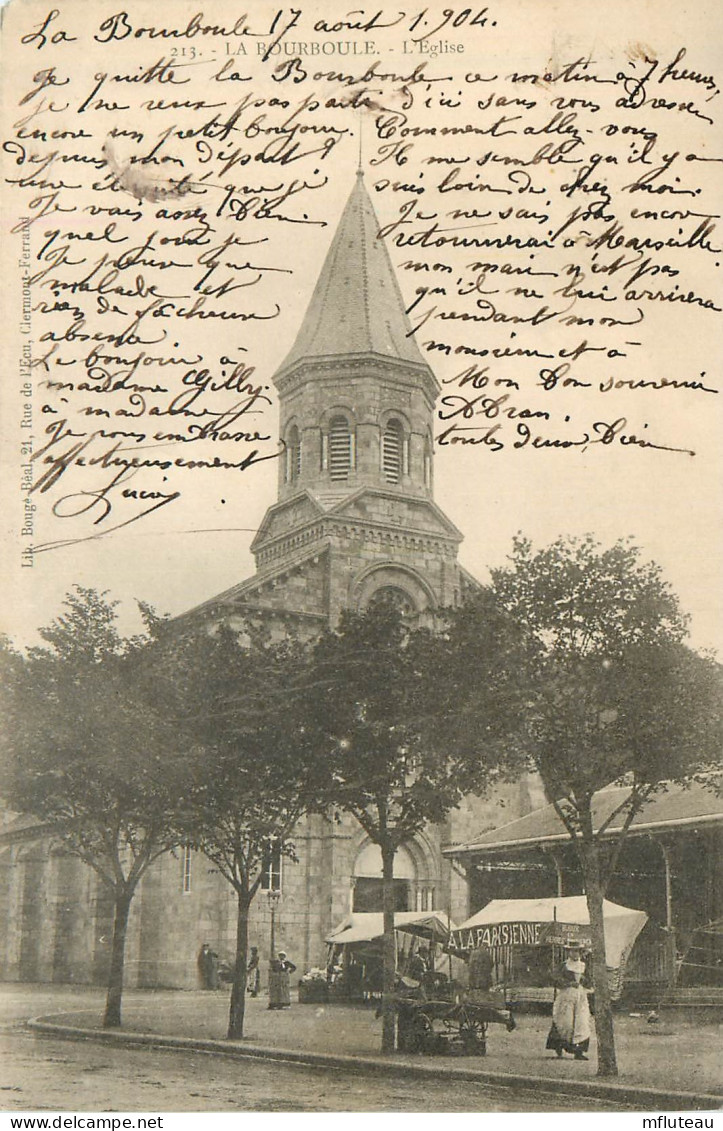 La Bourboule 17 août 1904.
213. - LA BOURBOULE. - L'Eglise
Je quitte la Bourboule ce matin à 7 heures,
je ne veux pas partir d'ici sans vous adresser
encore un petit bonjour. Comment allez-vous
depuis mon départ ? Il me semble qu'il y a
une éternité que je suis loin de chez moi.
Je vais assez bien, Je ne sais pas encore
quel jour je retournerai à Marseille
Je pense que mon mari n'est pas
malade et qu'il ne lui arrivera
rien de fâcheux pendant mon
absence.
Le bonjour à monsieur et à
madame Gilly, Mon bon souvenir
à madame Abran.
Je vous embrasse toutes deux bien
affectueusement
Lucie
Lib. Bougé-Béal, 21, Rue de l'Ecu, Clermont-Ferrand
A LA PARISIENNE
www.delcampe.net
mfluteau